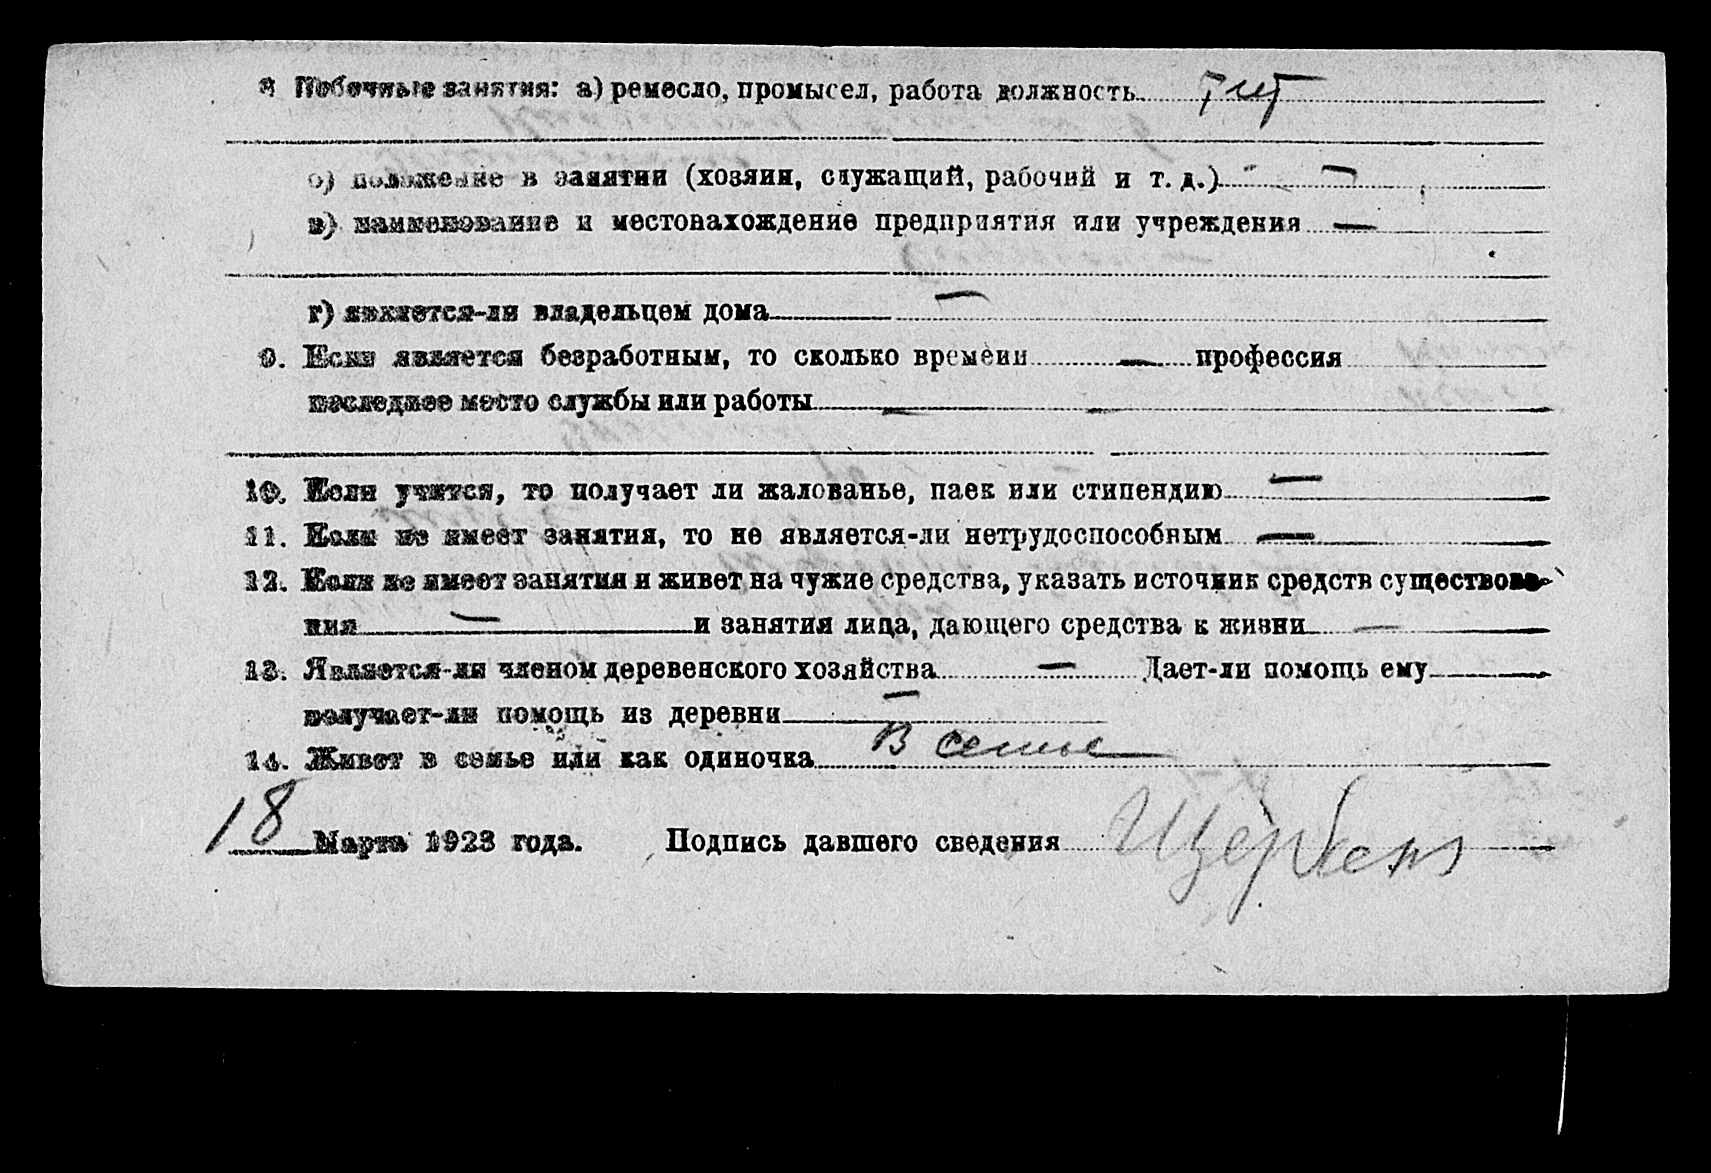 8 Побочные занятия: а) ремесло, промысел, работа должность
б) положение в занятии (хозяин, служащий, рабочий и т. д.)
в) наименование и местонахождение предприятия или учреждения —
г) является-ли владельцем дома —
9. Если является безработным, то сколько времени — профессия
последнее место службы или работы — —
10. Если учится, то получает ли жалованье, паек или стипендию —
11. Если не имеет занятия, то не является-ли нетрудоспособным —
12. Если не имеет занятия и живет на чужие средства, указать источник средств существова-
ния — и занятия лица, дающего средства к жизни —
13. Является-ли членом деревенского хозяйства — Дает-ли помощь ему
получает-ли помощь из деревни —
14. Живет в семье или как одиночка В семье
18 Марта 1923 года. Подпись давшего сведения